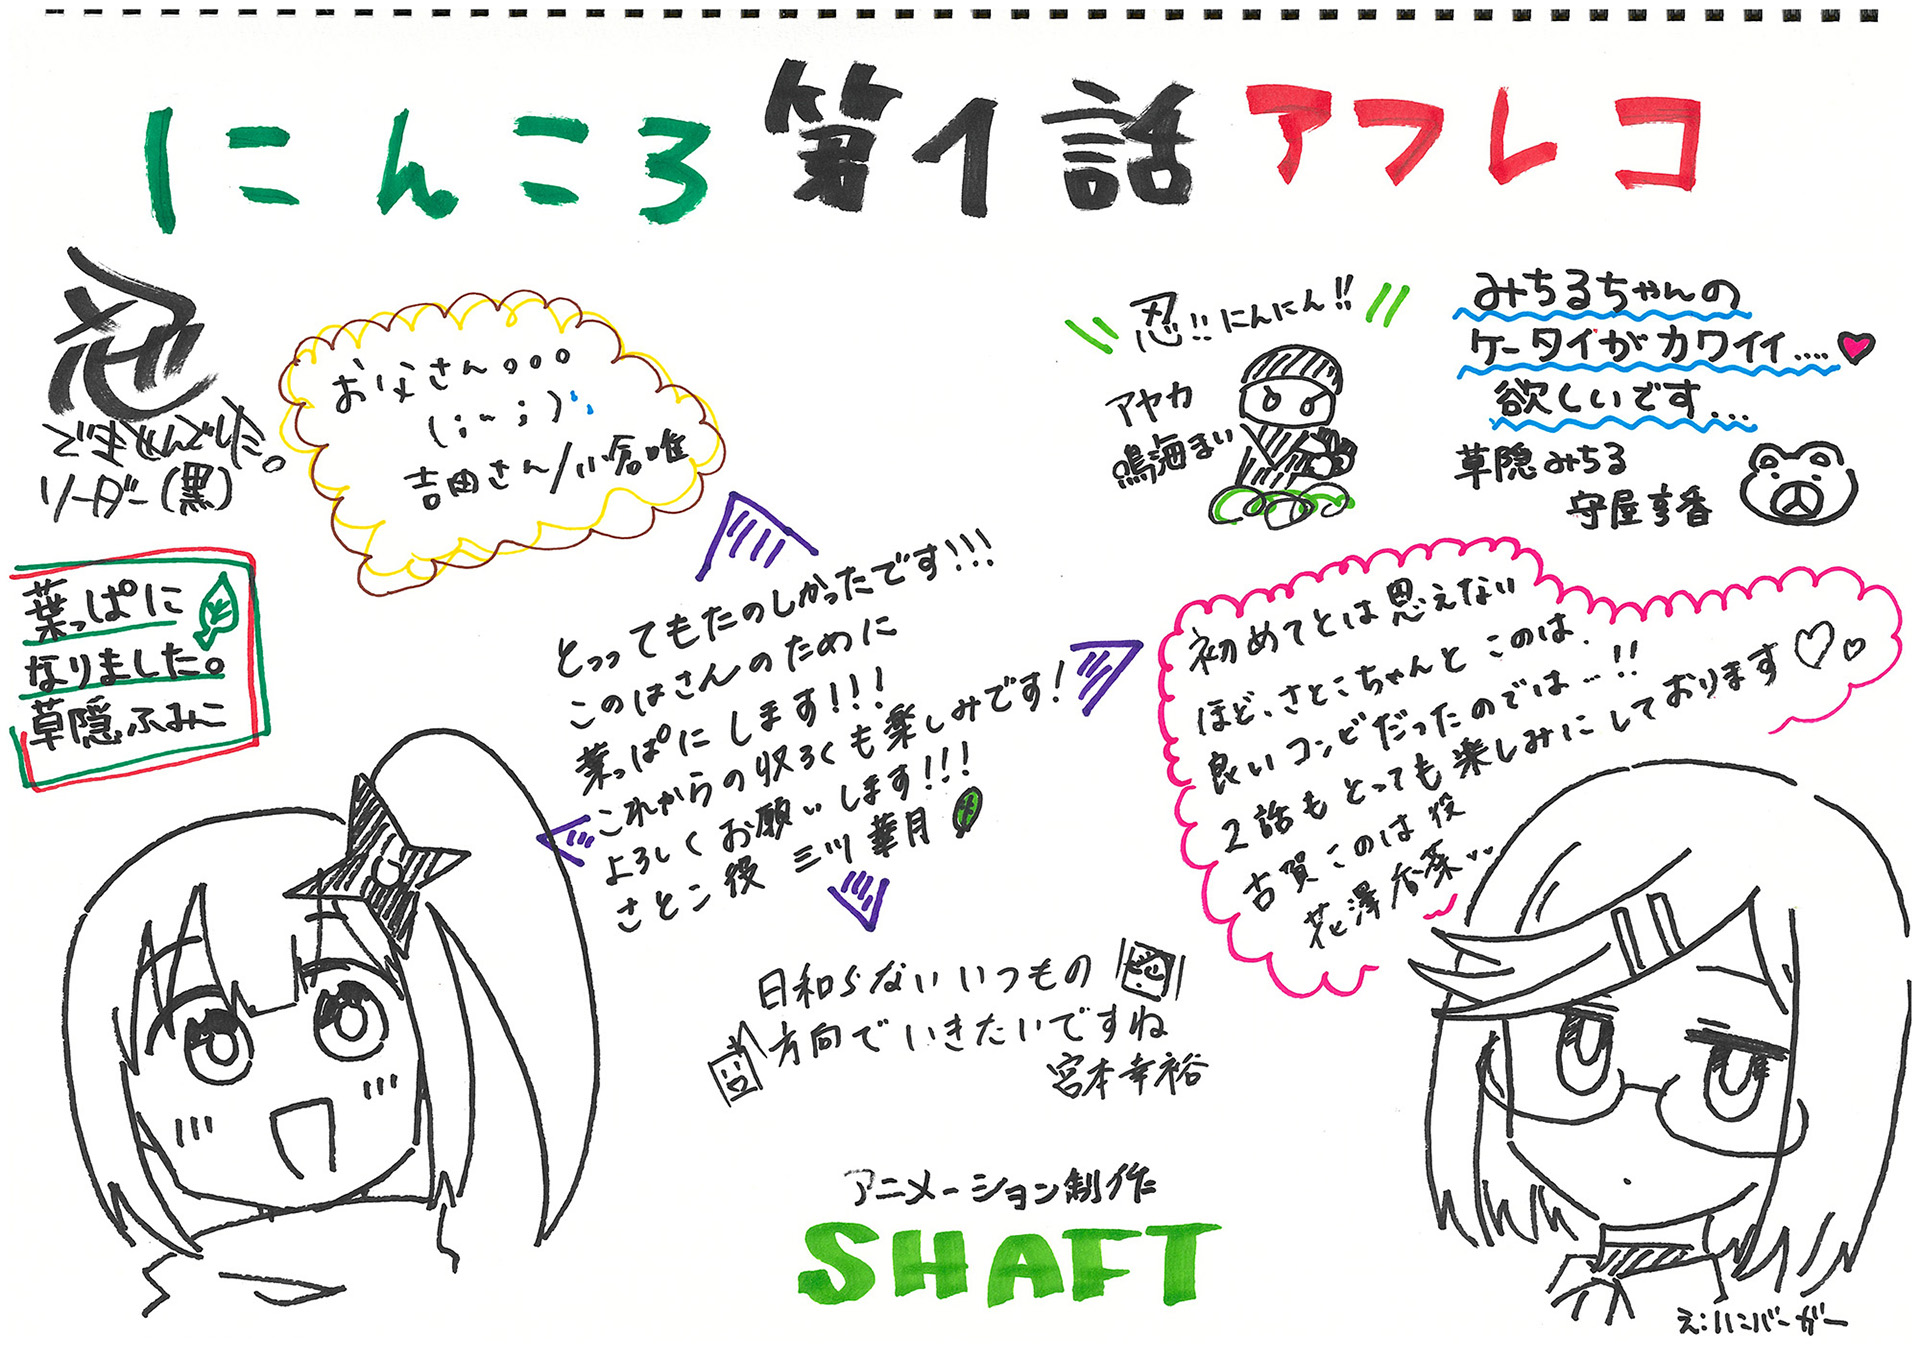 にんころ 第1話 アフレコ
忍
できませんでした。
リーダー(黒)
お父さん。。。
(;~;)
吉田さん/小倉唯
忍!! にんにん!!
アヤカ
鳴海まい
みちるちゃんの
ケータイがカワイイ....
欲しいです...
草隠みちる
守屋亨香
葉っぱに
なりました。
草隠ふみこ
とっってもたのしかったです!!!
このはさんのために
葉っぱにします!!!
これからの収ろくも楽しみです!
よろしくお願いします!!!
さとこ役 三川華月
初めてとは思えない
ほど、さとこちゃんとこのは、
良いコンビだったのでは…!!
2話もとっても楽しみにしております♡♡
古賀このは役
花澤香菜
日和らないいつもの
方向でいきたいですね
宮本幸裕
アニメーション制作
SHAFT
え:ハンバーガー